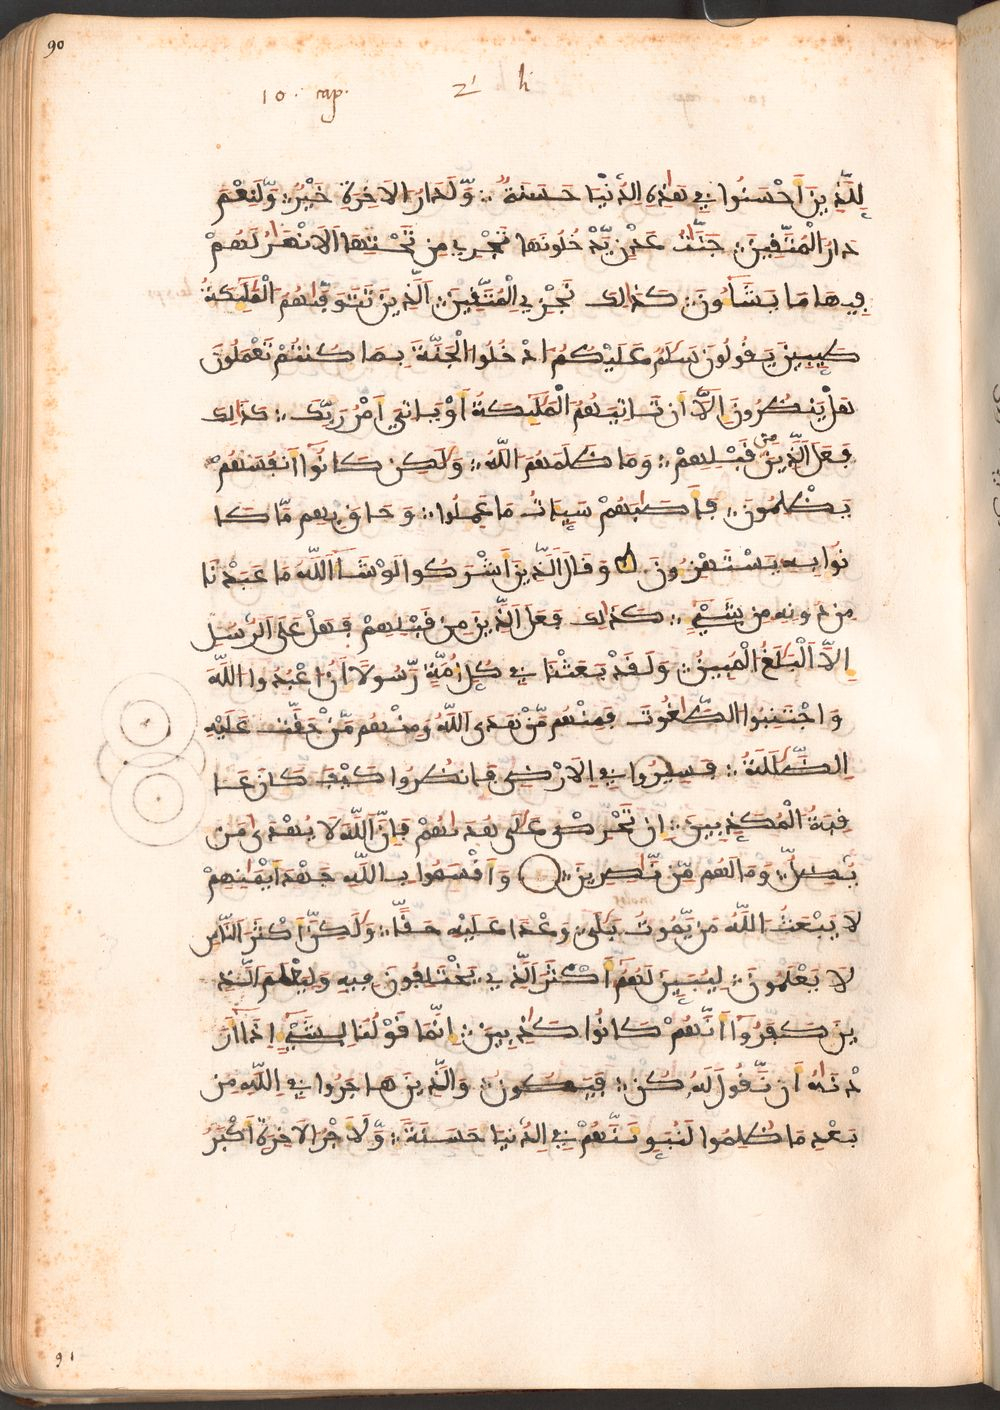 90
10. cap. 2 h
لِلَّذِينَ أَحْسَنُوا فِي هَٰذِهِ الدُّنْيَا حَسَنَةٌ وَّلَدَارُ الَاخِرَةِ خَيْرٌ وَّلَنِعْمَ
دَارُ الْمُتَّقِينَ جَنَّٰتُ عَدْنٍ يَّدْخُلُونَهَا تَجْرِي مِن تَحْتِهَا الَانْهَٰرُ لَهُمْ
فِيهَا مَا يَشَآءُونَ كَذَٰلِكَ نَجْزِي الْمُتَّقِينَ الَّذِينَ تَتَوَفَّىٰهُمُ الْمَلَٰٓئِكَةُ
طَيِّبِينَ يَقُولُونَ سَلَٰمٌ عَلَيْكُمُ ادْخُلُوا الْجَنَّةَ بِمَا كُنتُمْ تَعْمَلُونَ
هَلْ يَنظُرُونَ إِلَّآ أَن تَاتِيَهُمُ الْمَلَٰٓئِكَةُ أَوْ يَاتِيَ أَمْرُ رَبِّكَ كَذَٰلِكَ
فَعَلَ الَّذِينَ مِن قَبْلِهِمْ وَمَا ظَلَمَهُمُ اللَّهُ وَلَٰكِن كَانُوٓا أَنفُسَهُمْ
يَظْلِمُونَ فَأَصَٰبَهُمْ سَيِّئَاتُ مَا عَمِلُوا وَحَاقَ بِهِم مَّا كَا
نُوا بِهِ يَسْتَهْزِءُونَ وَقَالَ الَّذِينَ أَشْرَكُوا لَوْ شَآءَ اللَّهُ مَا عَبَدْنَا
مِن دُونِهِ مِن شَيْءٍ كَذَٰلِكَ فَعَلَ الَّذِينَ مِن قَبْلِهِمْ فَهَلْ عَلَى الرُّسُلِ
إِلَّا الْبَلَٰغُ الْمُبِينُ وَلَقَدْ بَعَثْنَا فِي كُلِّ أُمَّةٍ رَّسُولًا أَنُ اعْبُدُوا اللَّهَ
وَاجْتَنِبُوا الطَّٰغُوتَ فَمِنْهُم مَّنْ هَدَى اللَّهُ وَمِنْهُم مَّنْ حَقَّتْ عَلَيْهِ
الضَّلَٰلَةُ فَسِيرُوا فِي الَارْضِ فَانظُرُوا كَيْفَ كَانَ عَٰـ
قِبَةُ الْمُكَذِّبِينَ إِن تَحْرِصْ عَلَىٰ هُدَىٰهُمْ فَإِنَّ اللَّهَ لَا يُهْدَىٰ مَن
يُضِلُّ وَمَا لَهُم مِّن نَّٰصِرِينَ وَأَقْسَمُوا بِاللَّهِ جَهْدَ أَيْمَٰنِهِمْ
لَا يَبْعَثُ اللَّهُ مَن يَّمُوتُ بَلَىٰ وَعْدًا عَلَيْهِ حَقًّا وَلَٰكِنَّ أَكْثَرَ النَّاسِ
لَا يَعْلَمُونَ لِيُبَيِّنَ لَهُمُ أَكْثَرَ الَّذِي يَخْتَلِفُونَ فِيهِ وَلِيَعْلَمَ الَّذِ
ينَ كَفَرُوٓا أَنَّهُمْ كَانُوا كَٰذِبِينَ إِنَّمَا قَوْلُنَا لِشَيْءٍ إِذَآ أَرَ
دْنَٰهُ أَن نَّقُولَ لَهُ كُن فَيَكُونُ وَالَّذِينَ هَاجَرُوا فِي اللَّهِ مِن
بَعْدِ مَا ظُلِمُوا لَنُبَوِّئَنَّهُمْ فِي الدُّنْيَا حَسَنَةً وَّلَأَجْرُ الَاخِرَةِ أَكْبَرُ
91